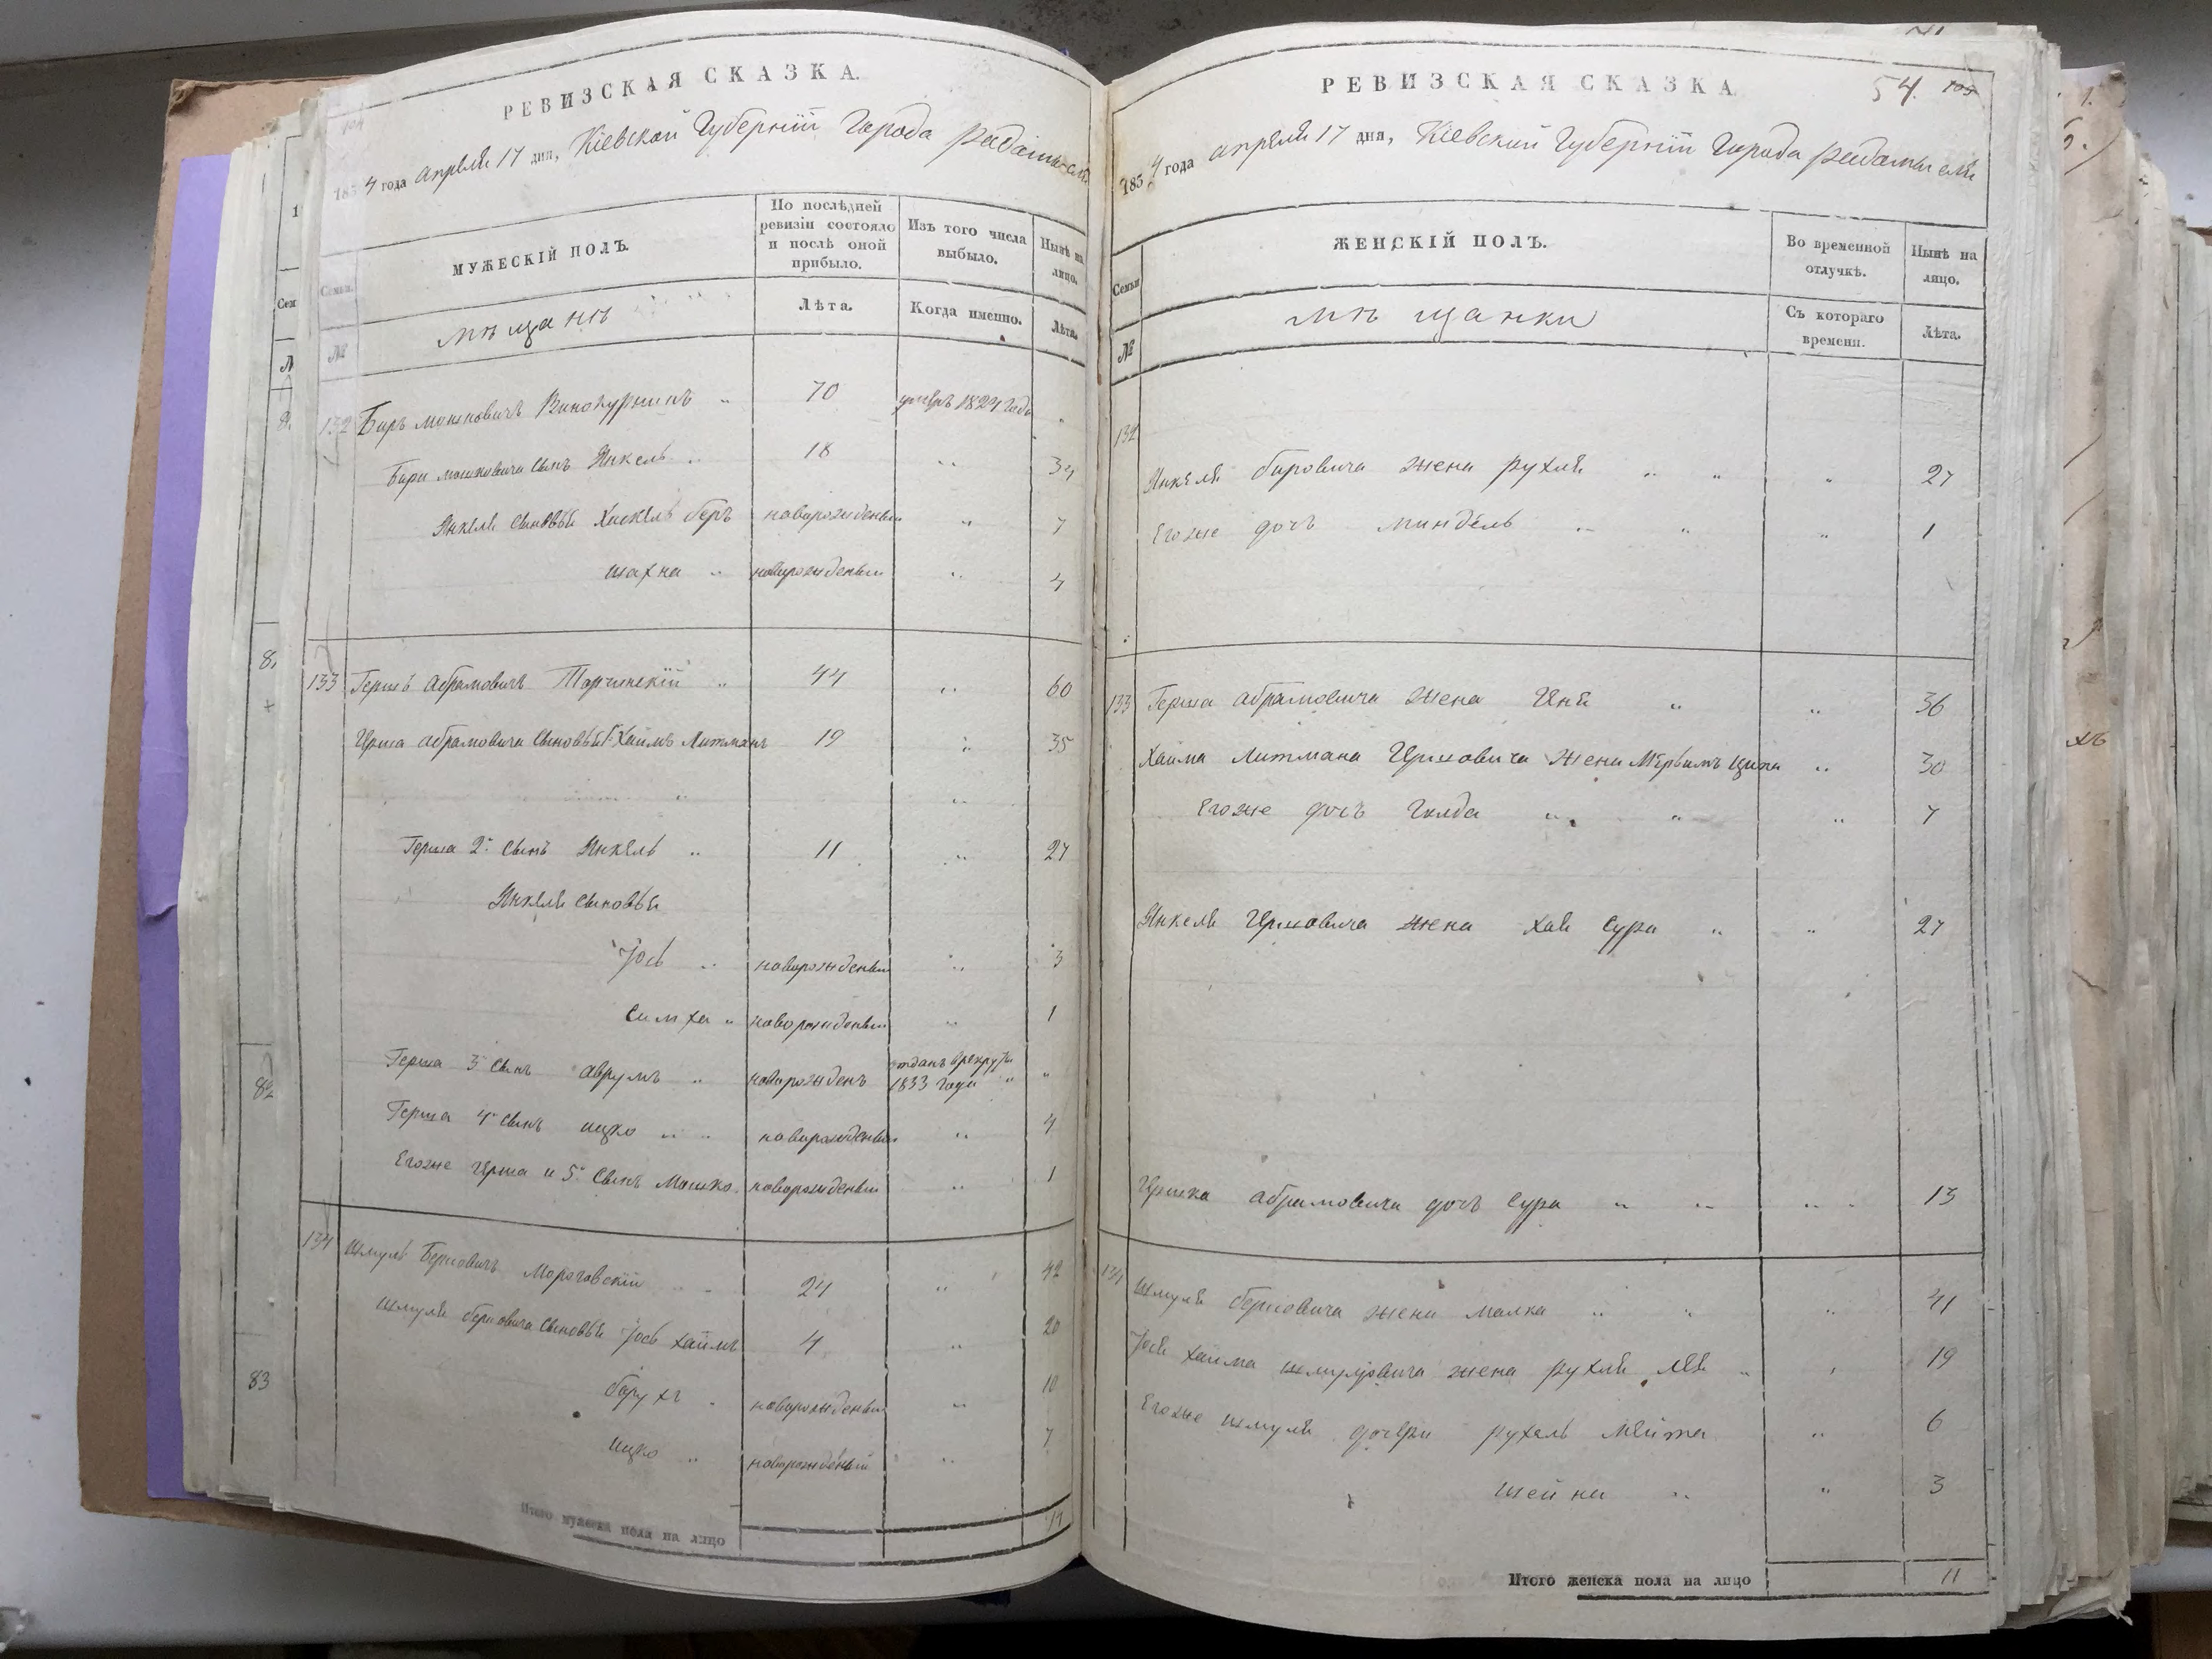 РЕВИЗСКАЯ СКАЗКА.
1834 года апреля 17 дня, Кіевской Губерніи Города Радомысля
Семьи.
МУЖЕСКІЙ ПОЛЪ.
По послѣдней ревизіи состояло и послѣ оной прибыло.
Изъ того числа выбыло.
Нынѣ на лицо.
№
мѣщанъ
Лѣта.
Когда именно.
Лѣта.
132 Беръ Мошковичъ Винокурникъ 70
Бера Мошковича сынъ Янкель 18 34
Янкеля сыновья Хаскель Беръ новорожденый 7
Шахна новорожденый 4
133 Гершъ Абрамовичъ Торчинскій 44 60
Герша Абрамовича сыновья 1. Хаимъ Литманъ 19 35
Герша 2й сынъ Янкель 11 27
Янкеля сыновья
Іось новорожденый 3
Симха новорожденый 1
Герша 3 сынъ Аврумъ новорожденъ отданъ в рекруты 1833 года
Герша 4й сынъ Ицко новорожденый 4
Егоже Герша и 5й сынъ Мошко новорожденый 1
134 Шмуль Берковичъ 24 42
Шмуля Берковича сыновья Іось Хаимъ 4 20
Барухъ новорожденый 10
Ицко новорожденый 7
Итого мужеска пола на лицо
РЕВИЗСКАЯ СКАЗКА
54.
1834 года апреля 17 дня, Кіевской Губерніи Города Радомысля
Семьи
ЖЕНСКІЙ ПОЛЪ.
Во временной отлучкѣ.
Нынѣ на лицо.
№
мѣщанки
Съ котораго времени.
Лѣта.
132
Янкеля Беровича жена Рухля 27
Егоже дочь Миндель 1
133 Герша Абрамовича жена 36
Хаима Литмана Гершовича жена Ципа 30
Егоже дочь Голда 7
Янкеля Гершовича жена Хая Сура 27
Гершка Абрамовича дочь Сура 13
134 Шмуля Берковича жена Малка 41
Іося Хаима Шмулевича жена Рухля Лея 19
Егоже Шмуля дочери Рухель 6
Шейна 3
Итого женска пола на лицо 11
8.
82
83